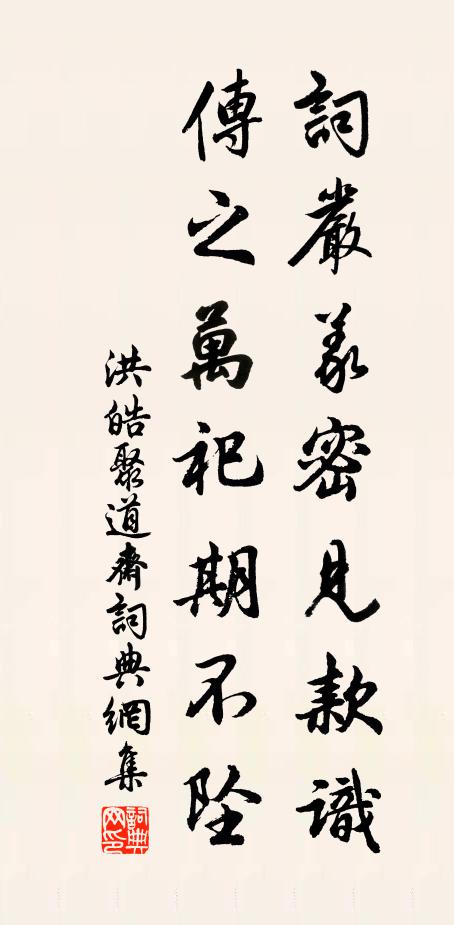 詞嚴義密見款識
傳之萬祀期不墜
洪皓聚道齋詞典網集
詞典
网印